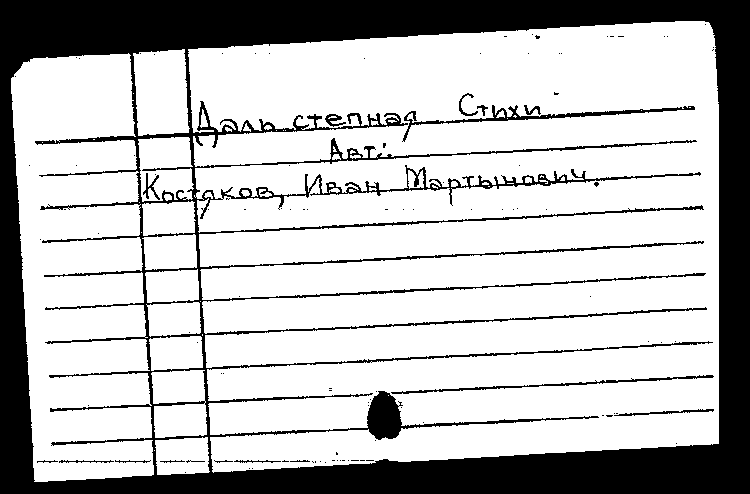 Даль степная Стихи
Авт.:
Костяков, Иван Мартынович.